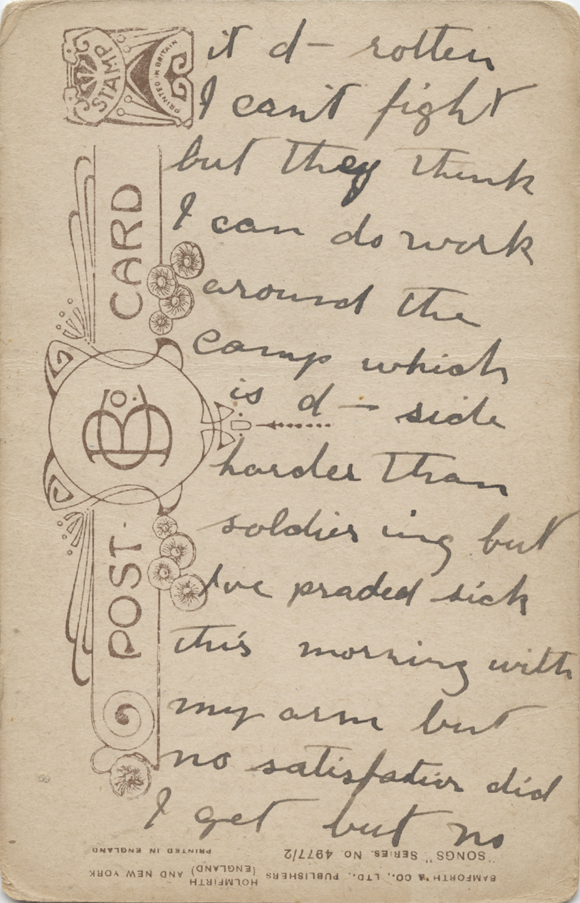 it d— rotten
I can't fight
but they think
I can do work
around the
camp which
is d— side
harder than
soldiering but
I've praded sick
this morning with
my arm but
no satisfation did
I get but no
STAMP
PRINTED IN BRITAIN
POST-CARD
B Co.
BAMFORTH & CO., LTD., PUBLISHERS HOLMFIRTH (ENGLAND) AND NEW YORK
"SONGS" SERIES. NO 4977/2
PRINTED IN ENGLAND